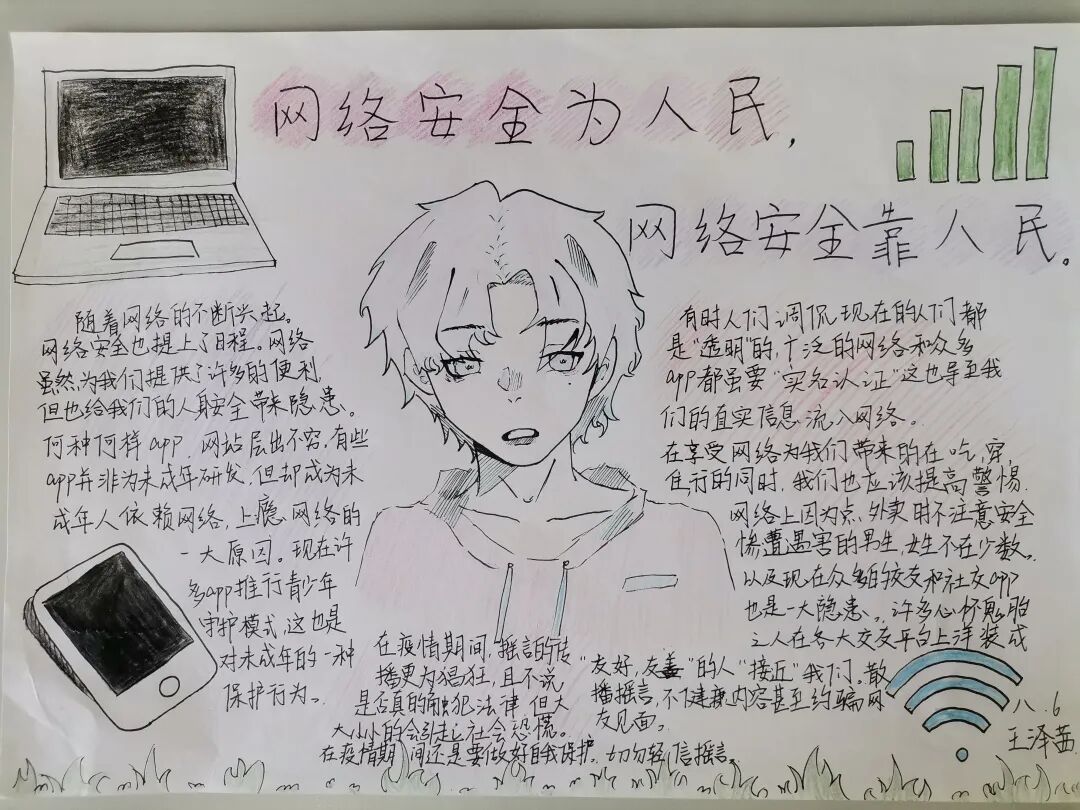 网络安全为人民，
网络安全靠人民。
随着网络的不断兴起。
网络安全也提上了日程。网络
虽然为我们提供了许多的便利，
但也给我们的人身安全带来隐患。
何种何样app，网站层出不穷，有些
app并非为未成年研发，但却成为未
成年人依赖网络，上瘾网络的
一大原因。现在许
多app推行青少年
守护模式，这也是
对未成年的一种
保护行为。
在疫情期间，摇言的传
播更为猖狂，且不说
是否真的触犯法律，但大
大小小的会引起社会恐慌。
在疫情期间还是要做好自我保护，切勿轻信摇言。
有时人们调侃现在的人们都
是"透明"的，广泛的网络和众多
app都虽要"实名认证"这也导至我
们的真实信息流入网络。
在享受网络为我们带来的在吃，穿，
住，行的同时，我们也应该提高警惕，
网络上因为点外卖时不注意安全
惨遭遇害的男生，女生不在少数。
以及现在众多的校友和社交app
也是一大隐患。许多心怀鬼胎
之人在各大交友平台上洋装成
"友好，友善"的人"接近"我们。散
播摇言，不健康内容甚至约骗网
友见面。
八.6
王泽茜